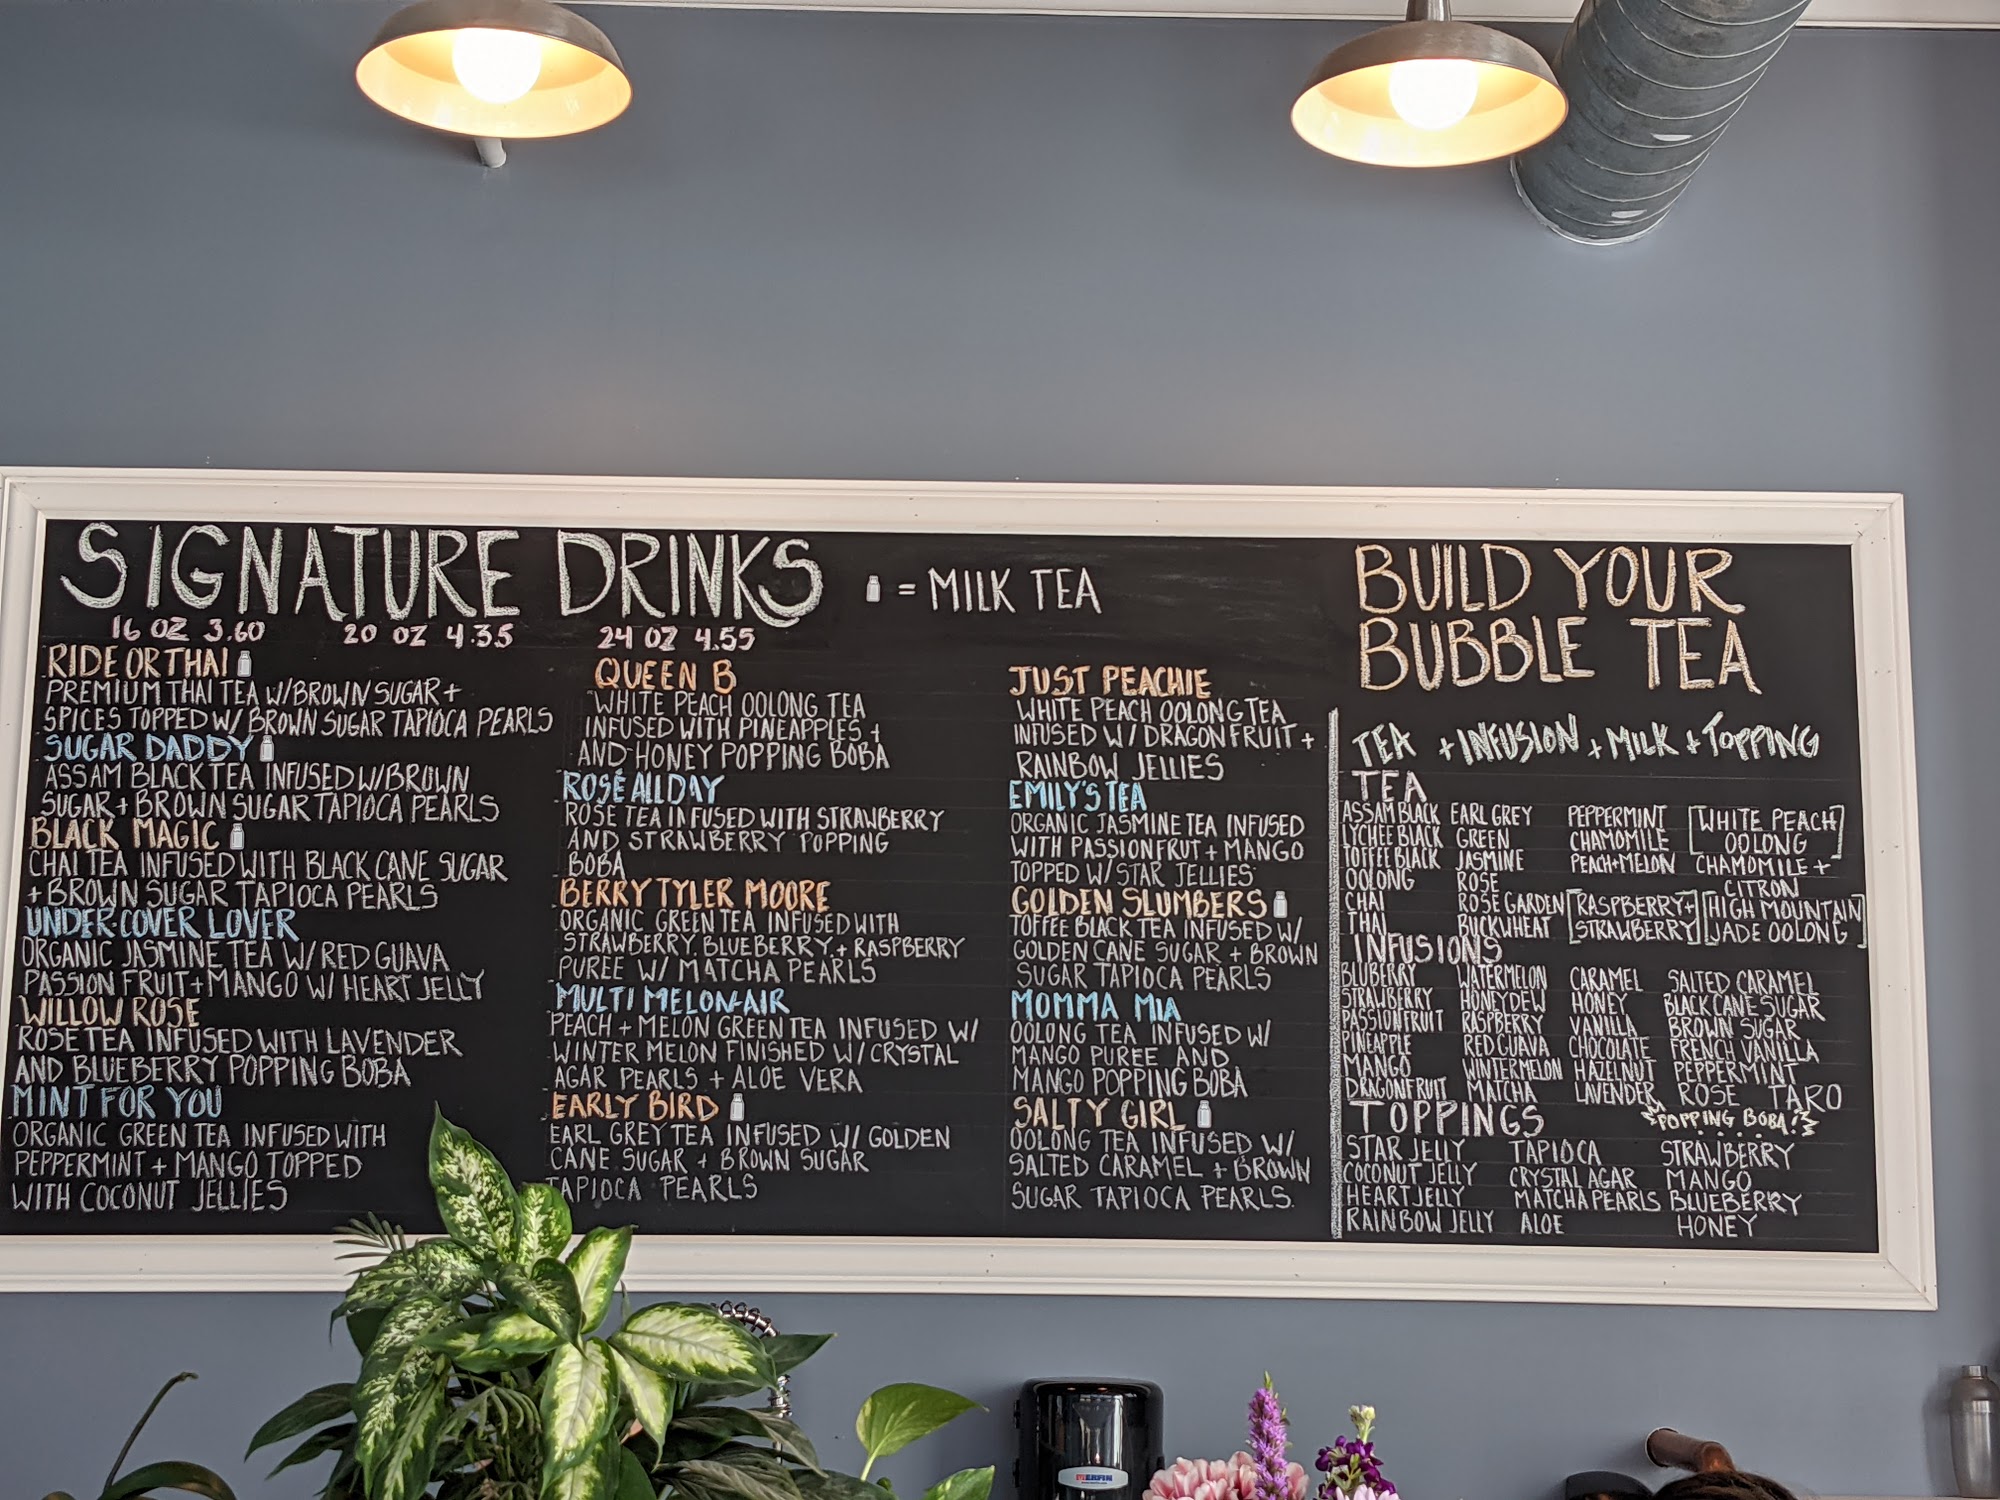 SIGNATURE DRINKS
= MILK TEA
16 OZ 3.60 20 OZ 4.35 24 OZ 4.55
RIDE OR THAI
PREMIUM THAI TEA W/ BROWN SUGAR +
SPICES TOPPED W/ BROWN SUGAR TAPIOCA PEARLS
SUGAR DADDY
ASSAM BLACK TEA INFUSED W/ BROWN
SUGAR + BROWN SUGAR TAPIOCA PEARLS
BLACK MAGIC
CHAI TEA INFUSED WITH BLACK CANE SUGAR
+ BROWN SUGAR TAPIOCA PEARLS
UNDER-COVER LOVER
ORGANIC JASMINE TEA W/ RED GUAVA
PASSION FRUIT + MANGO W/ HEART JELLY
WILLOW ROSE
ROSE TEA INFUSED WITH LAVENDER
AND BLUEBERRY POPPING BOBA
MINT FOR YOU
ORGANIC GREEN TEA INFUSED WITH
PEPPERMINT + MANGO TOPPED
WITH COCONUT JELLIES
QUEEN B
WHITE PEACH OOLONG TEA
INFUSED WITH PINEAPPLES +
AND HONEY POPPING BOBA
ROSÉ ALL DAY
ROSE TEA INFUSED WITH STRAWBERRY
AND STRAWBERRY POPPING
BOBA
BERRY TYLER MOORE
ORGANIC GREEN TEA INFUSED WITH
STRAWBERRY, BLUEBERRY, + RASPBERRY
PUREE W/ MATCHA PEARLS
MULTI MELON-AIR
PEACH + MELON GREEN TEA INFUSED W/
WINTER MELON FINISHED W/ CRYSTAL
AGAR PEARLS + ALOE VERA
EARLY BIRD
EARL GREY TEA INFUSED W/ GOLDEN
CANE SUGAR + BROWN SUGAR
TAPIOCA PEARLS
JUST PEACHIE
WHITE PEACH OOLONG TEA
INFUSED W/ DRAGON FRUIT +
RAINBOW JELLIES
EMILY'S TEA
ORGANIC JASMINE TEA INFUSED
WITH PASSIONFRUT + MANGO
TOPPED W/ STAR JELLIES
GOLDEN SLUMBERS
TOFFEE BLACK TEA INFUSED W/
GOLDEN CANE SUGAR + BROWN
SUGAR TAPIOCA PEARLS
MOMMA MIA
OOLONG TEA INFUSED W/
MANGO PUREE AND
MANGO POPPING BOBA
SALTY GIRL
OOLONG TEA INFUSED W/
SALTED CARAMEL + BROWN
SUGAR TAPIOCA PEARLS.
BUILD YOUR
BUBBLE TEA
TEA + INFUSION + MILK + TOPPING
TEA
ASSAM BLACK EARL GREY PEPPERMINT [WHITE PEACH
LYCHEE BLACK GREEN CHAMOMILE OOLONG]
TOFFEE BLACK JASMINE PEACH+MELON CHAMOMILE +
OOLONG ROSE CITRON
CHAI ROSE GARDEN [RASPBERRY+ [HIGH MOUNTAIN
THAI BUCKWHEAT STRAWBERRY] JADE OOLONG]
INFUSIONS
BLUBERRY WATERMELON CARAMEL SALTED CARAMEL
STRAWBERRY HONEYDEW HONEY BLACK CANE SUGAR
PASSIONFRUIT RASPBERRY VANILLA BROWN SUGAR
PINEAPPLE RED GUAVA CHOCOLATE FRENCH VANILLA
MANGO WINTERMELON HAZELNUT PEPPERMINT
DRAGONFRUIT MATCHA LAVENDER ROSE TARO
TOPPINGS POPPING BOBA!
STAR JELLY TAPIOCA STRAWBERRY
COCONUT JELLY CRYSTAL AGAR MANGO
HEART JELLY MATCHA PEARLS BLUEBERRY
RAINBOW JELLY ALOE HONEY